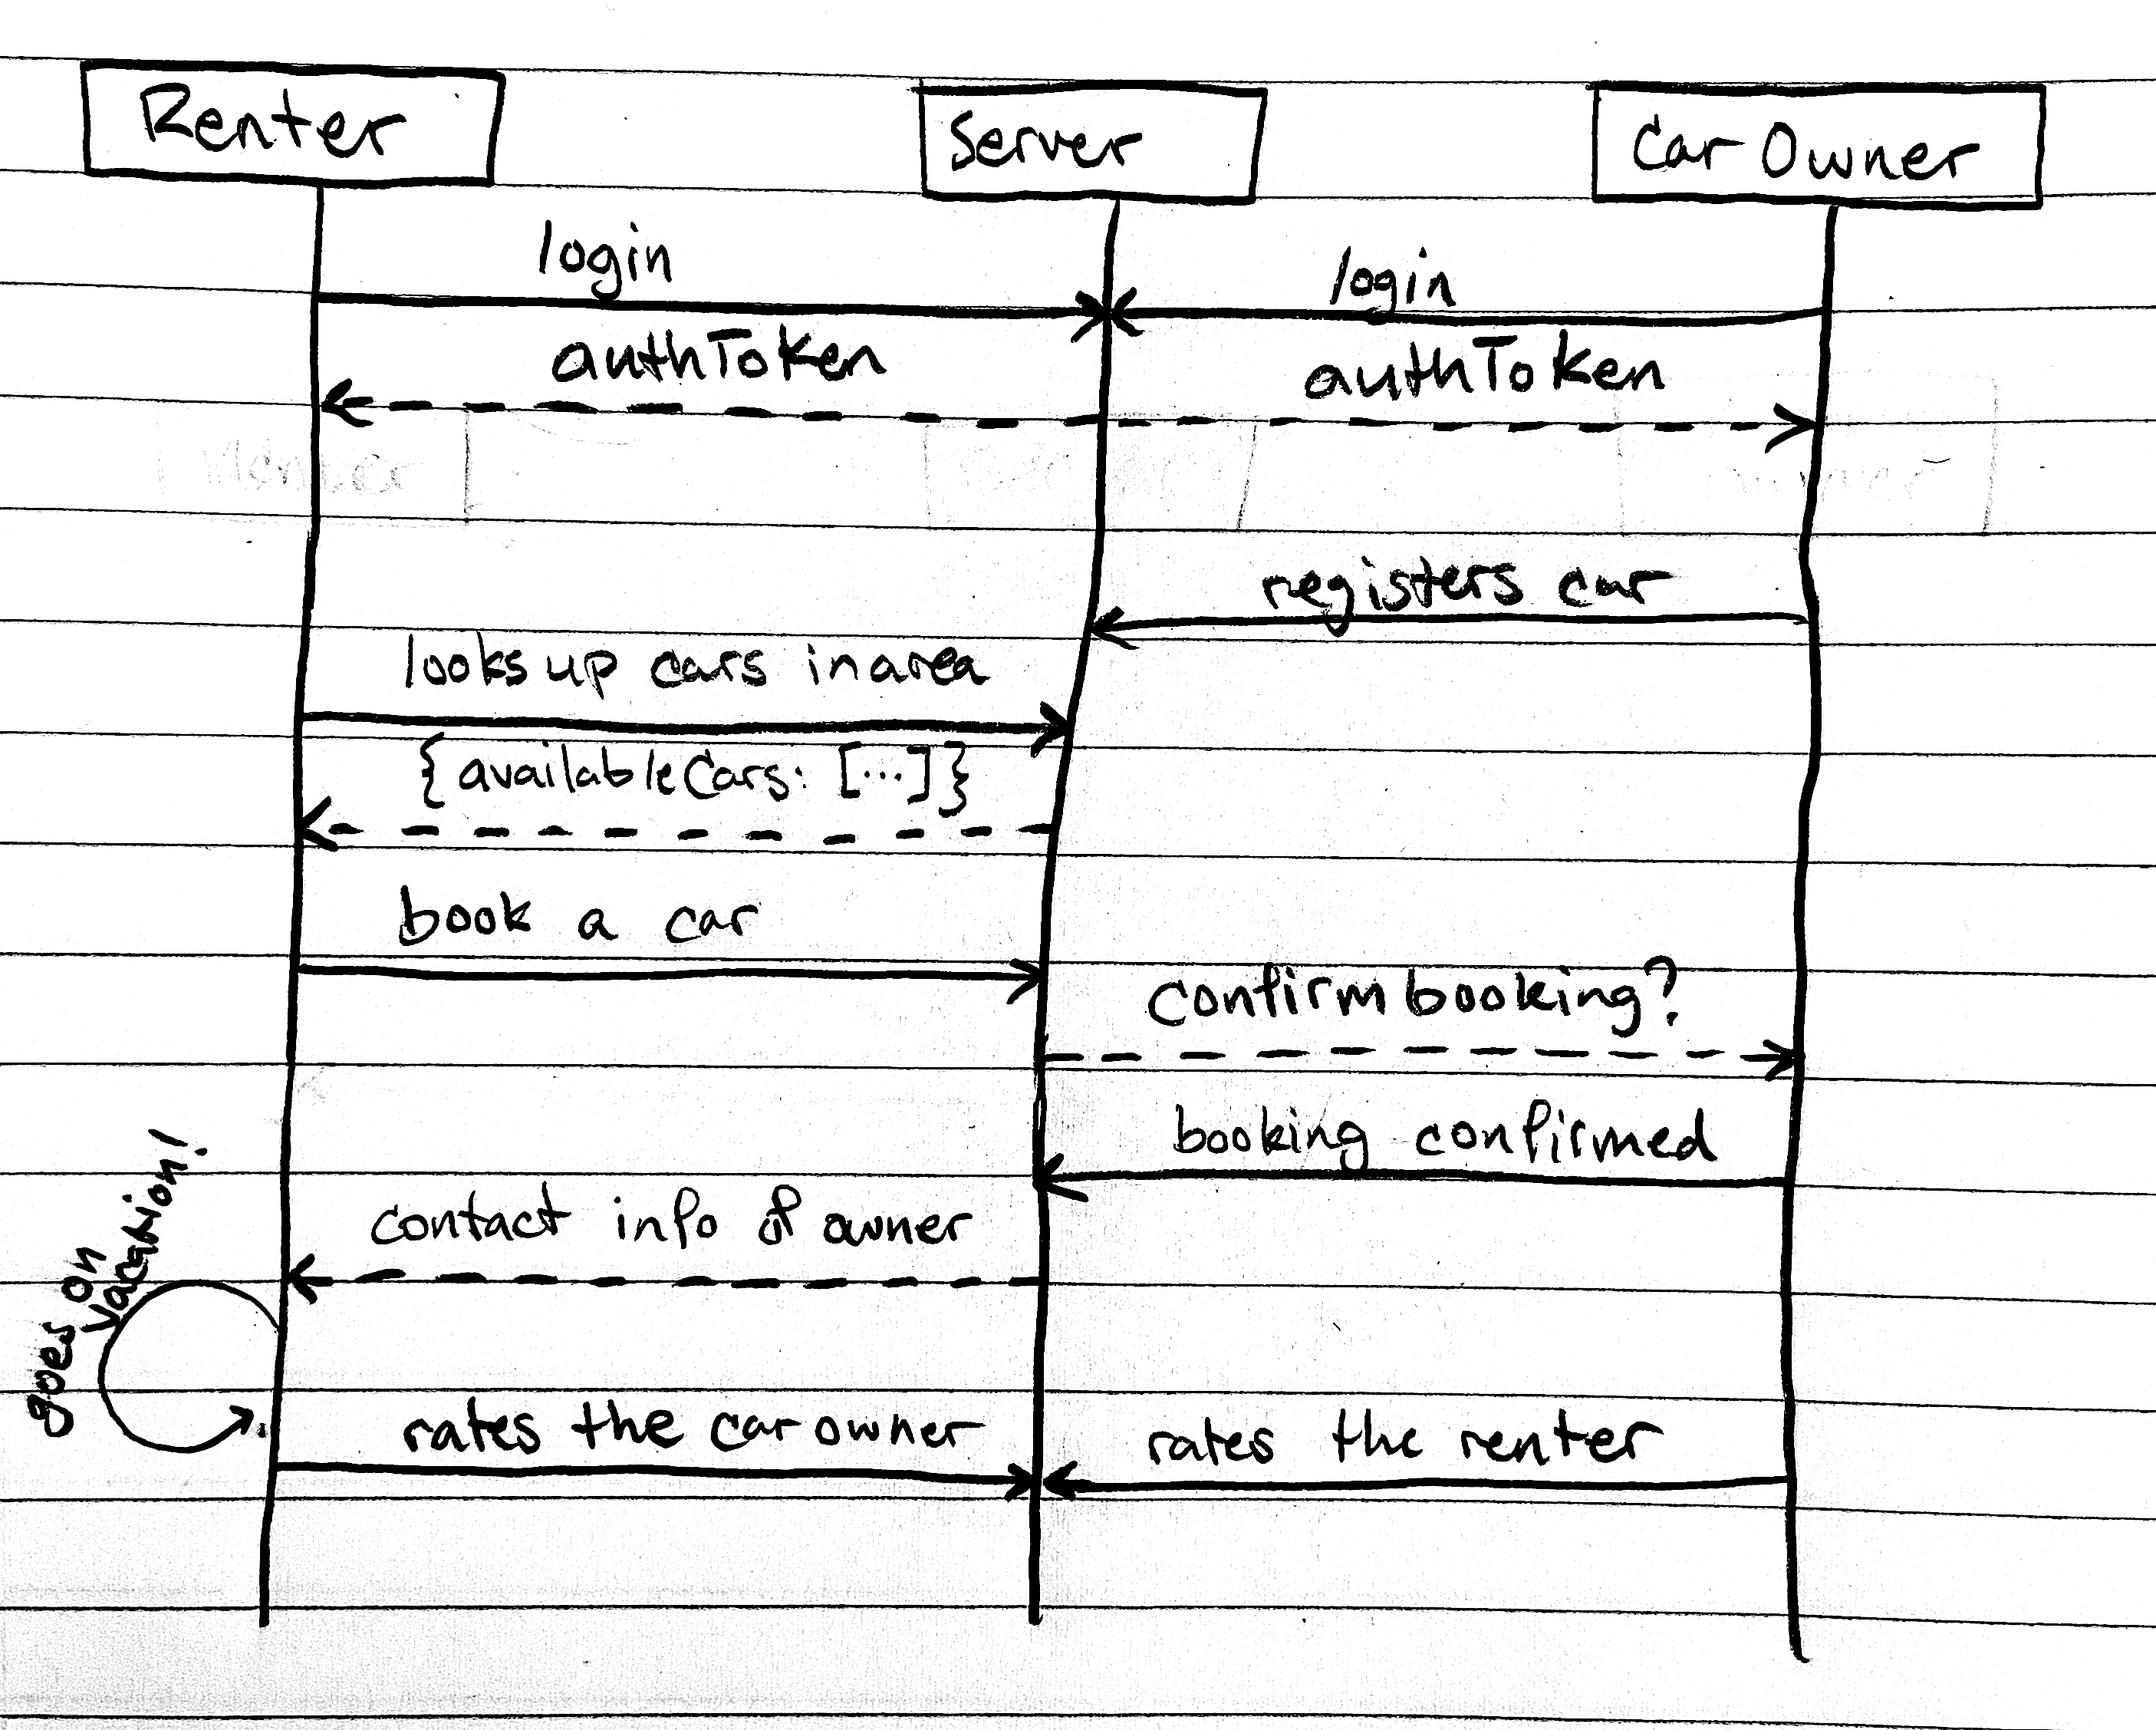 Renter
Server
Car Owner
login
login
authToken
authToken
registers car
looks up cars in area
{availableCars: [...]}
book a car
confirm booking?
booking confirmed
contact info of owner
goes on
vacation!
rates the car owner
rates the renter